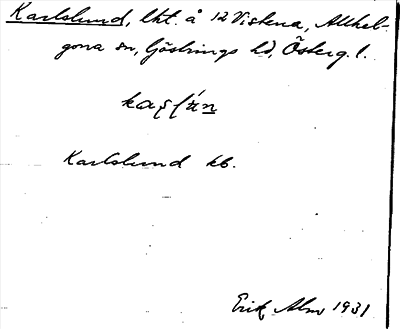 Karlslund, lht. å 12 Viskena, Allhel-
gona sn, Göstrings hd, Österg. l.
Karlslund kb.
Erik Alm 1931